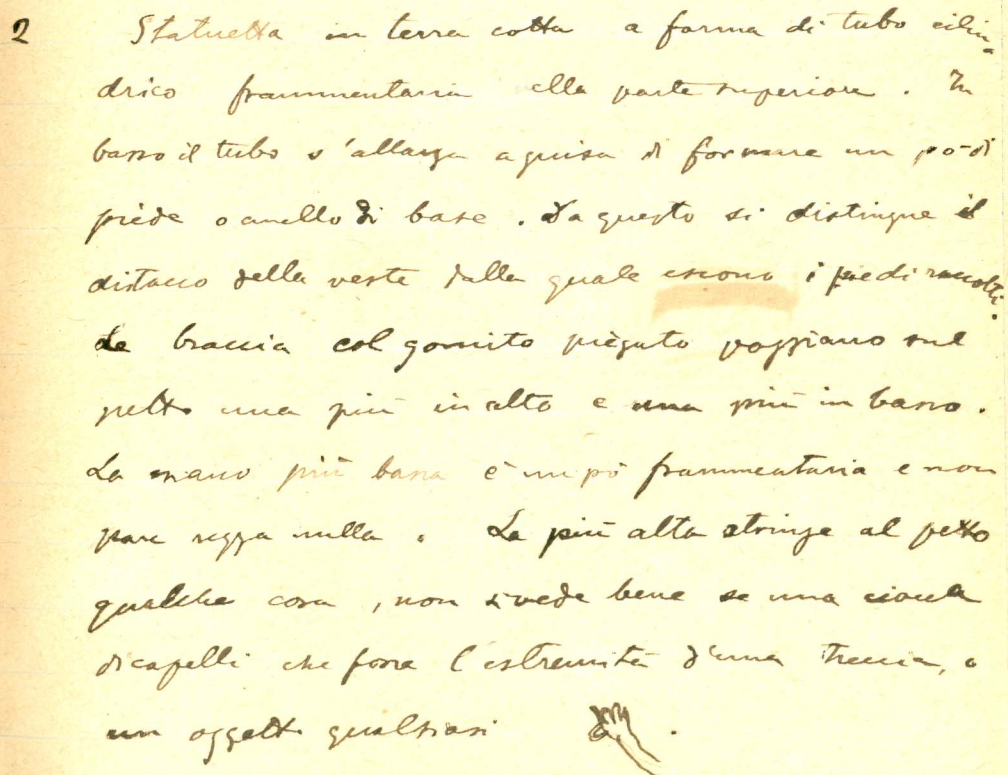 2 Statuetta in terra cotta a forma di tubo cilin-
drico frammentaria alla parte superiore. In
basso il tubo s'allarga a guisa di formare un po' di
piede o anello di base. Da questo si distingue il
distacco della veste dalla quale escono i piedi raccolti.
Le braccia col gomito piegato poggiano sul
petto una più in alto e una più in basso.
La mano più bassa è un pò frammentaria e non
pare regga nulla. La più alta stringe al petto
qualche cosa, non si vede bene se una ciocca
di capelli che fossa l'estremità d'una treccia, o
un oggetto qualsiasi .